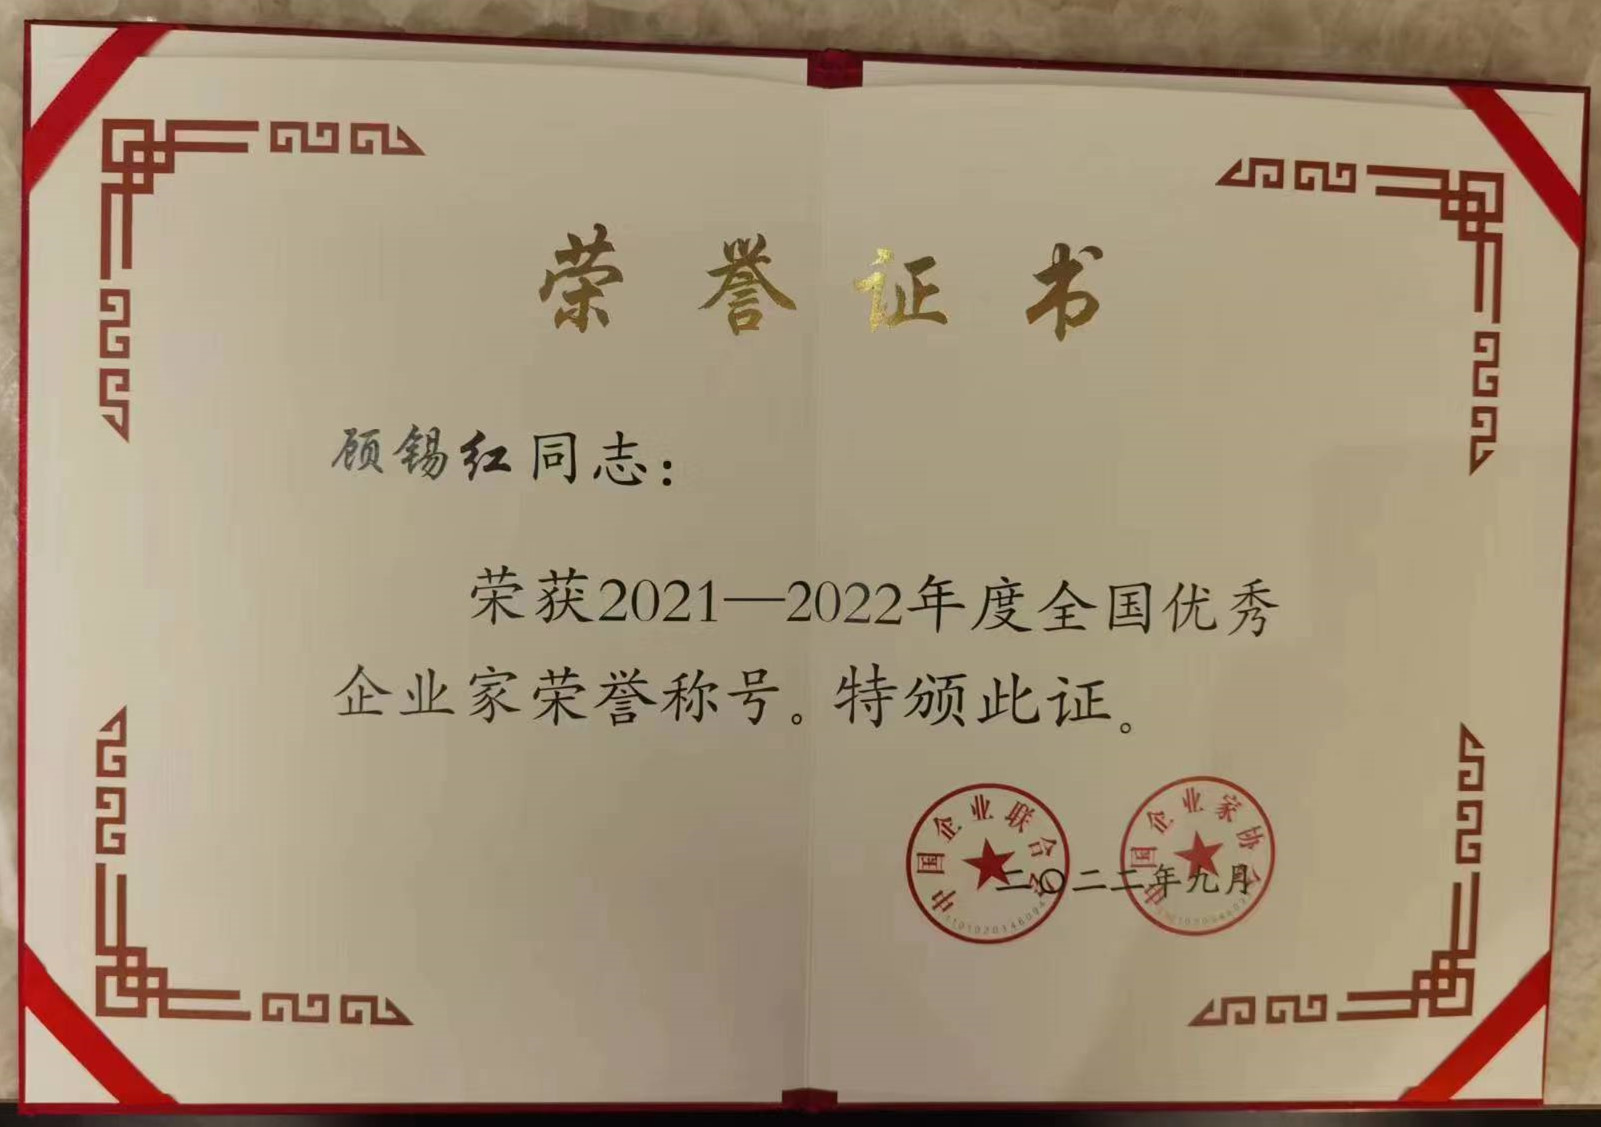 荣誉证书
顾锡红同志：
荣获2021—2022年度全国优秀
企业家荣誉称号。特颁此证。
中国企业联合会
中国企业家协会
二〇二二年九月